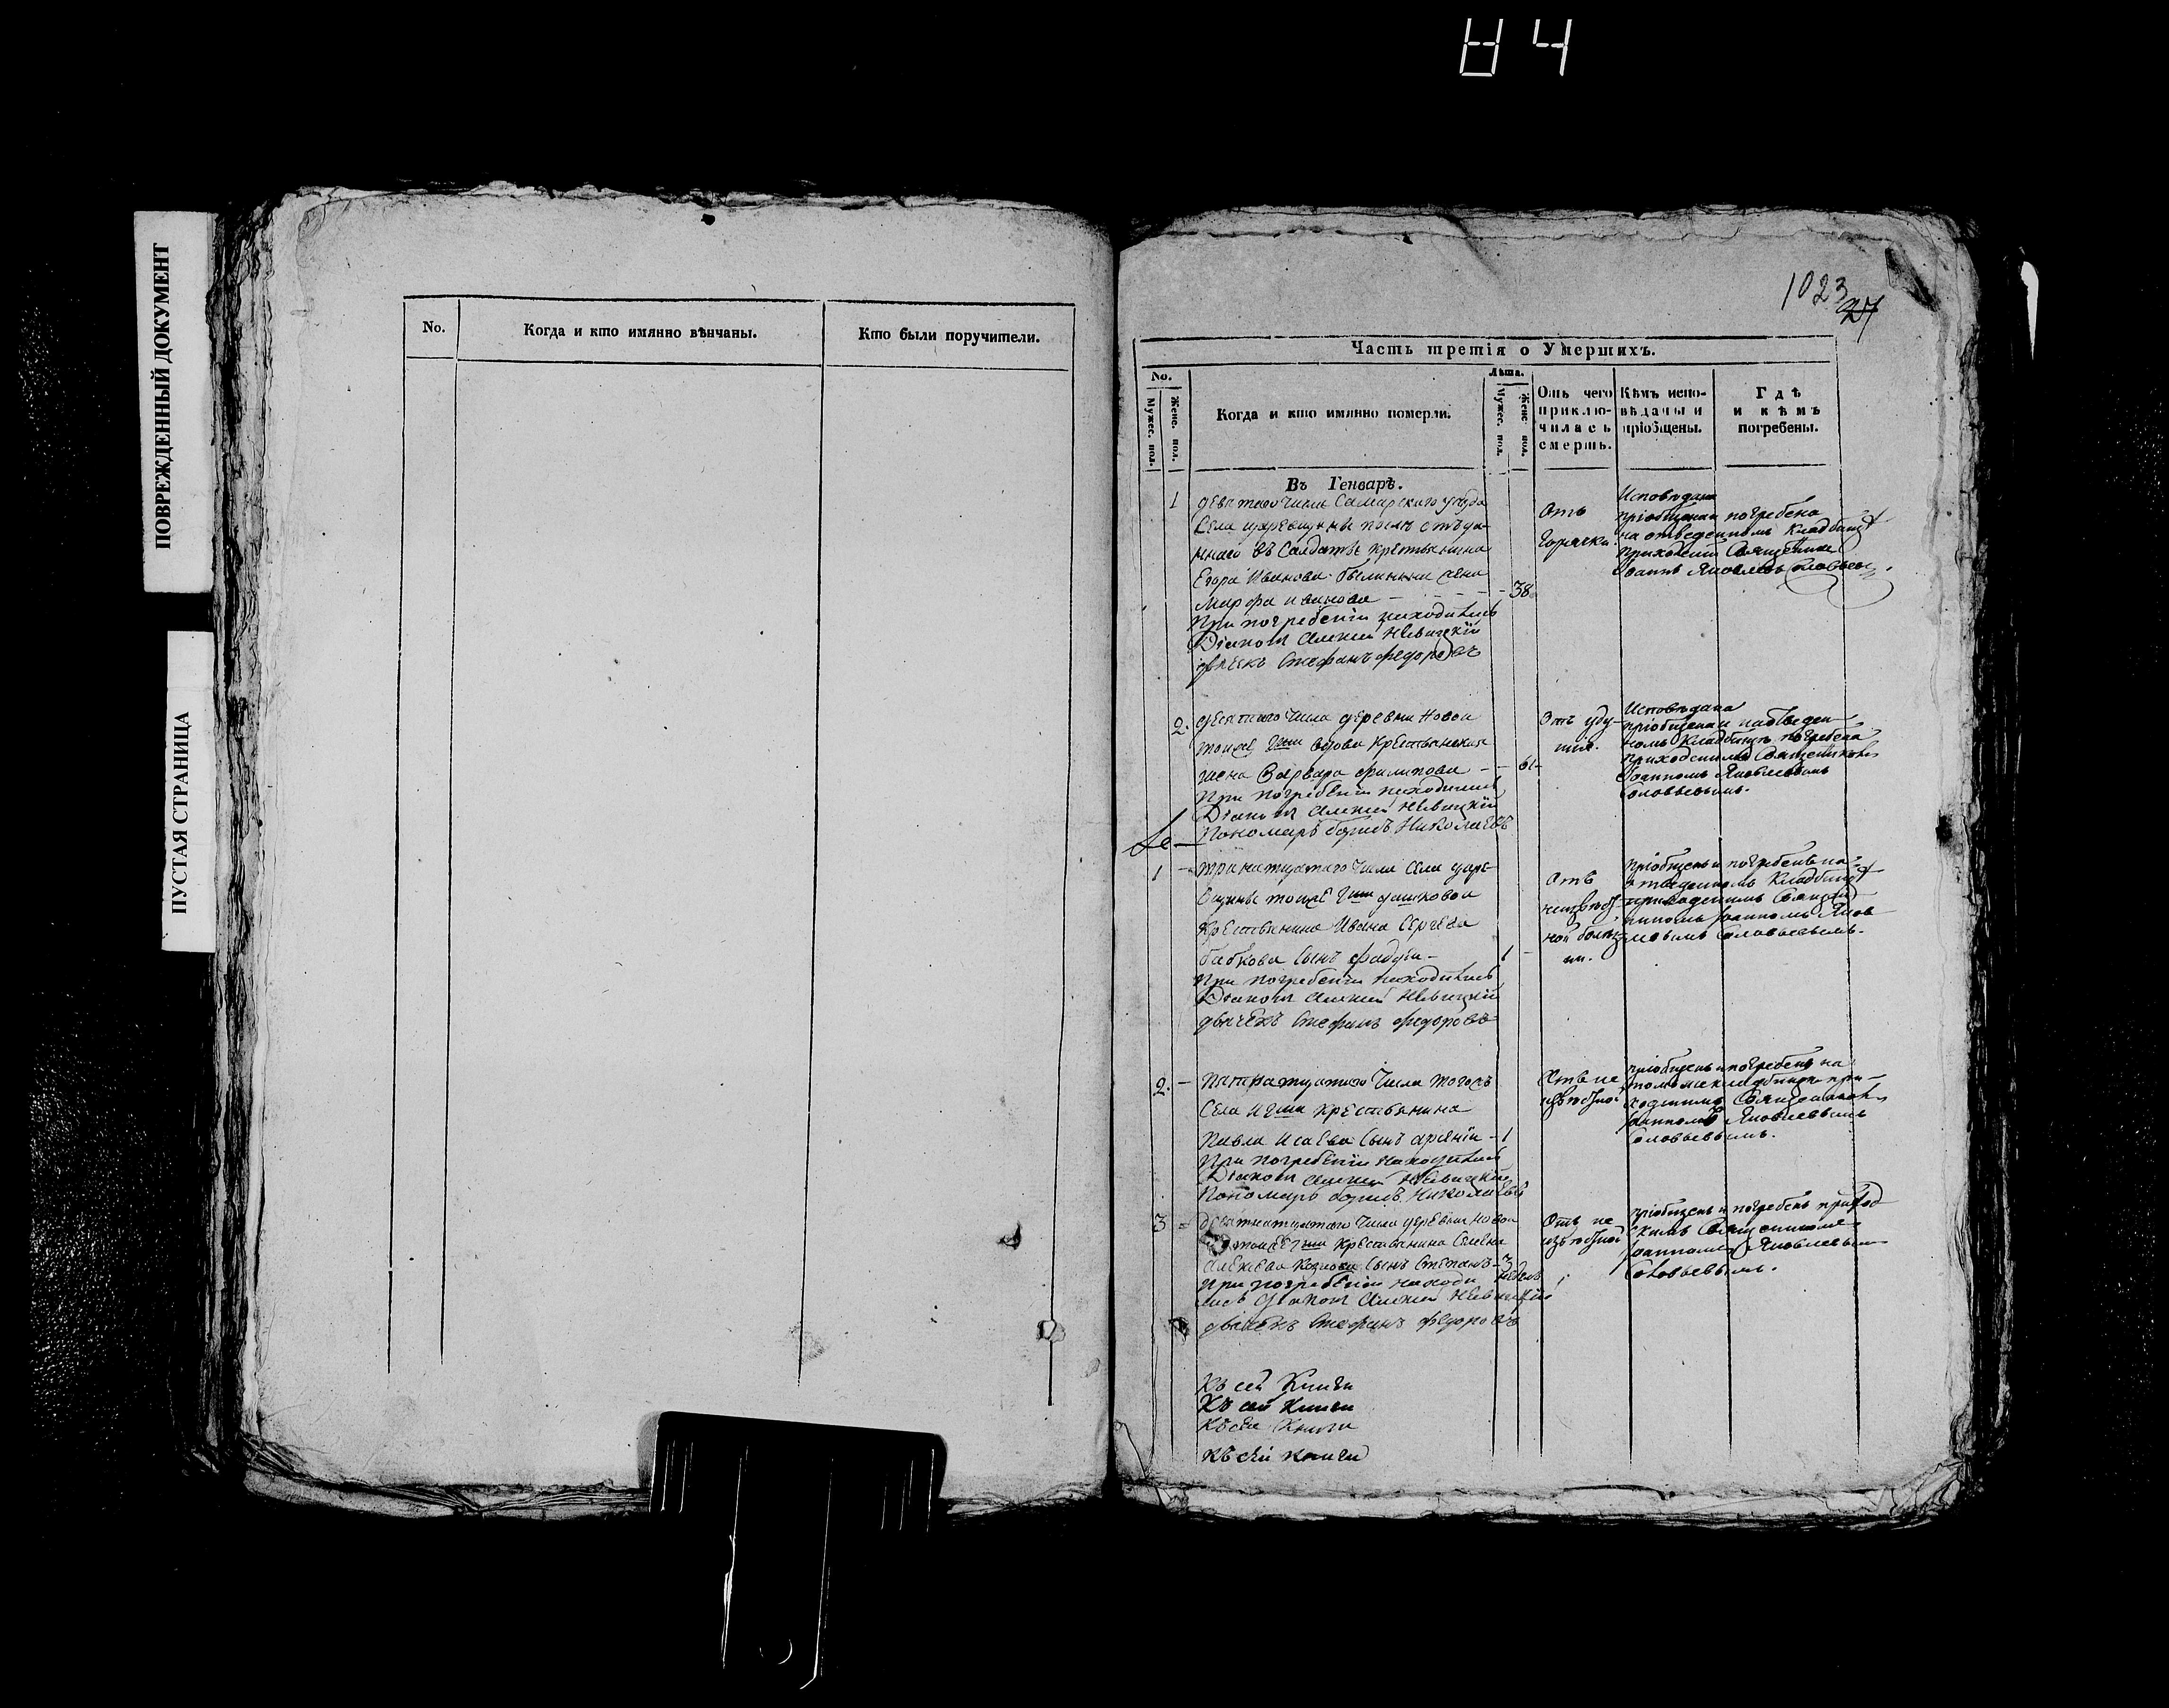 84
ПОВРЕЖДЕННЫЙ ДОКУМЕНТ
ПУСТАЯ СТРАНИЦА
No.
Когда и кто имянно вѣнчаны.
Кто были поручители.
1023
27
Часть третія о Умершихъ.
No.
Мужес. пол.
Женс. пол.
Когда и кто имянно померли.
Лѣта.
Мужес. пол.
Женс пол.
Отъ чего
приклю-
чилась
смерть.
Кѣмъ испо-
вѣданы и
пріобщены.
Гдѣ
и кѣмъ
погребены.
Въ Генварѣ.
1
девятаго числа Самарского уезда
Села царевщины
въ Солдаты крестьянина
Егора Иванова жена
Марфа иванова
38
При погребеніи находились
Діакон Алексей
дьячекъ Стефанъ федоровъ
Отъ
горячки.
Исповѣдана
пріобщена и погребена
на отведенномъ кладбищѣ
приходскимъ
Іоаннъ Яковлевъ
2.
десятаго числа деревни Новой
тоже вдова крестьянская
жена Варвара филипова
61
При погребеніи находились
Діакон Алексей
Пономарь борисъ Николаевъ
Отъ уду-
шія.
Исповѣдана
пріобщена и на отведен-
номъ кладбищѣ погребена
приходскимъ Священникомъ
Іоанномъ Яковлевымъ
Соловьевымъ.
1
тринатцатаго числа Села царе-
вщины тоже
Крестьянина Ивана Сергеева
бабкова сынъ фадей
1
При погребеніи находились
Діакон Алексей
дьячекъ Стефанъ федоровъ
Отъ
неизвѣст-
ной болѣз-
ни.
Пріобщенъ и погребенъ на
отведенномъ кладбищѣ
приходскимъ Священ-
никомъ Іоанномъ Яков-
левымъ Соловьевымъ.
2.
Пятнатцатаго числа тогожъ
Села крестьянина
Павла Исаева сынъ арсеній
1
При погребеніи находились
Діакон Алексей
Пономарь борисъ Николаевъ
Отъ не
извѣстной
пріобщенъ и погребенъ на
томъ же кладбищѣ при-
ходскимъ Священникомъ
Іоанномъ Яковлевымъ
Соловьевымъ.
3
девятнатцатаго числа деревни новой
тоже крестьянина
сынъ Степанъ
3
недель
При погребеніи находи
лись діакон Алексей
дьячекъ Стефанъ федоровъ
Отъ не
извѣстной
пріобщенъ и погребенъ приход
скимъ Священникомъ
Іоанномъ Яковлевым
Соловьевымъ.
Къ сей Книги
Къ сей Книги
Къ сей Книги
Къ сей книги